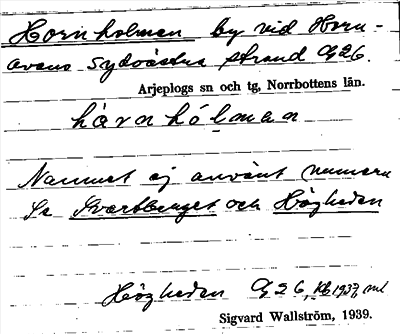 Hornholmen by vid Horn-
avans sydvästra strand G26.
Arjeplogs sn och tg, Norrbottens län.
hårnhólman
Namnet ej använt numera
Se Svartberget och Högheden
Högheden G26, Kb 1937, ml
Sigvard Wallström, 1939.